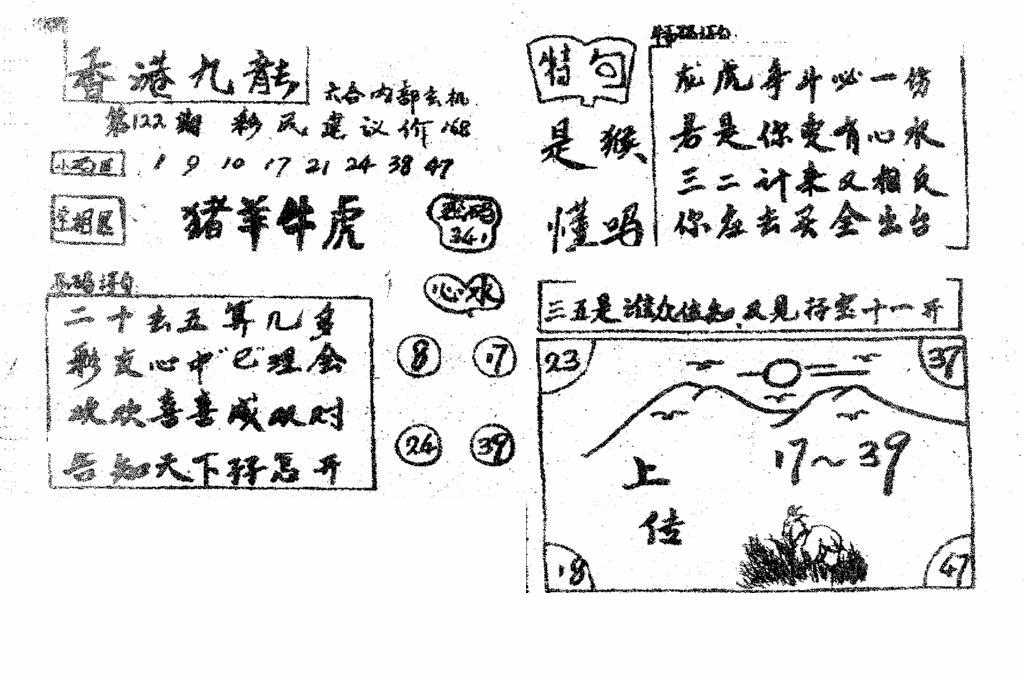 香港九龍
六合内部玄机
第122期 彩民建议价168
小码区 1 9 10 17 21 24 38 47
生相区 猪羊牛虎
密码
341
心水
二十去五算几多
彩友心中"已"理会
欢欢喜喜成双对
告知天下孖怎开
8 17
24 39
特句
是猴
懂吗
龙虎争斗必一伤
若是你要有心水
三二计来又相反
你在去买全出台
三五是谁众位知,又见孖宝十一开
23 37
17~39
上
传
18 47